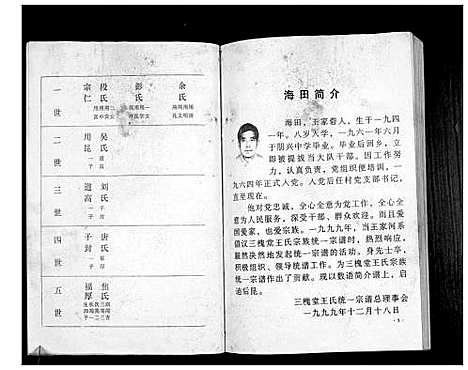 海田简介
海田，王家砦人，生于一九四
一年。八岁入学，一九六一年六月
于朋兴中学毕业。毕业后回乡，立
即被提拔当大队干部。因工作努
力，认真负责，党组织便培训，一
九六四年正式入党。入党后任村党支部书记，
直至现在。
他对党忠诚，全心全意为党工作，全心全
意为人民服务，深受干部、群众欢迎。而且爱
国爱家，也爱宗族。一九九九年，当王家河系
倡议三槐堂王氏宗族统一宗谱时，热烈响应，
毅然决然地发起统一宗谱的活动，身先士卒，
积极组织、领导统谱工作。为三槐堂王氏宗族
统一宗谱作出了贡献。现以数语简介谱上，启
迪后昆。
三槐堂王氏统一宗谱总理事会
一九九九年十二月十八日
一世
宗仁
段氏
彭氏
余氏
二世
用昆
吴氏
三世
道高
刘氏
四世
子封
唐氏
五世
福厚
焦氏